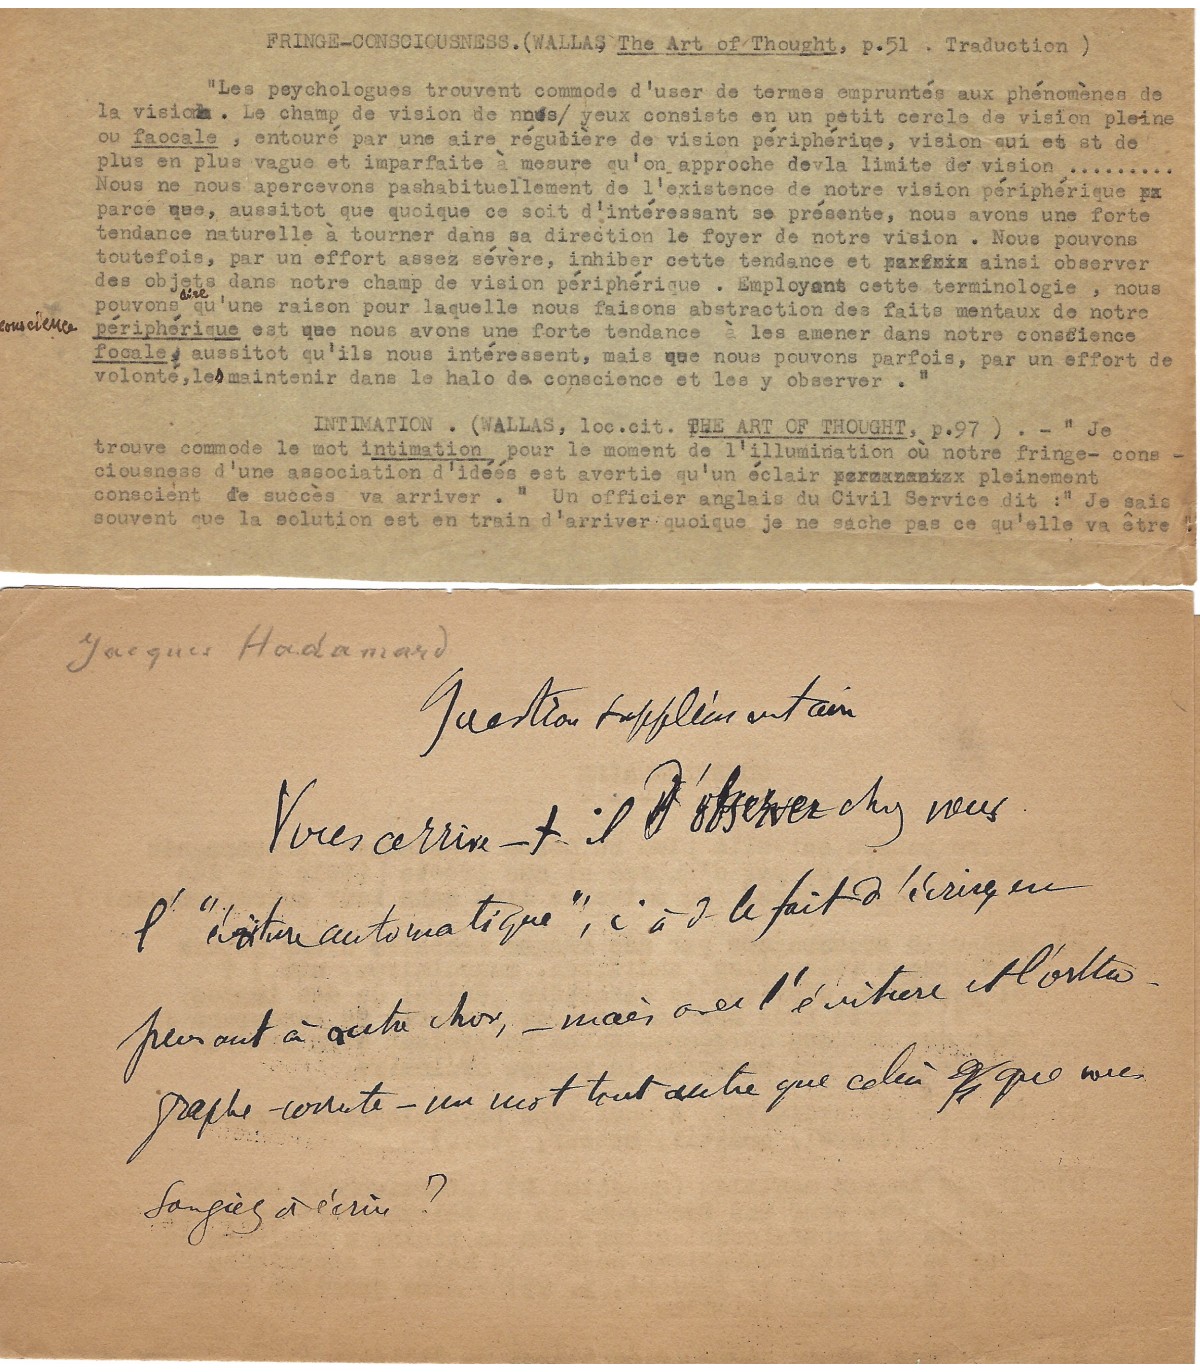 FRINGE-CONSCIOUSNESS.(WALLAS The Art of Thought, p.51 . Traduction )
"Les psychologues trouvent commode d'user de termes empruntés aux phénomènes de
la vision. Le champ de vision de nos/ yeux consiste en un petit cercle de vision pleine
ou faocale , entouré par une aire régulière de vision périphérique, vision qui et st de
plus en plus vague et imparfaite à mesure qu'on approche devla limite de vision .........
Nous ne nous apercevons pashabituellement de l'existence de notre vision périphérique
parce que, aussitot que quoique ce soit d'intéressant se présente, nous avons une forte
tendance naturelle à tourner dans sa direction le foyer de notre vision . Nous pouvons
toutefois, par un effort assez sévère, inhiber cette tendance et ainsi observer
des objets dans notre champ de vision périphérique . Employant cette terminologie , nous
pouvons dire qu'une raison pour laquelle nous faisons abstraction des faits mentaux de notre
conscience périphérique est que nous avons une forte tendance à les amener dans notre conscience
focale, aussitot qu'ils nous intéressent, mais que nous pouvons parfois, par un effort de
volonté,les maintenir dans le halo de conscience et les y observer . "
INTIMATION . (WALLAS, loc.cit. THE ART OF THOUGHT, p.97 ) . - " Je
trouve commode le mot intimation pour le moment de l'illumination où notre fringe- cons -
ciousness d'une association d'idées est avertie qu'un éclair pleinement
conscient de succès va arriver . " Un officier anglais du Civil Service dit :" Je sais
souvent que la solution est en train d'arriver quoique je ne sache pas ce qu'elle va être "
Jacques Hadamard
Question supplémentaire
Vous arrive-t-il d'observer chez vous
l'"écriture automatique", c à d le fait d'écrire, en
pensant à autre chose, - mais avec l'écriture et l'ortho-
graphe correcte - un mot tout autre que celui que vous
songiez à écrire ?